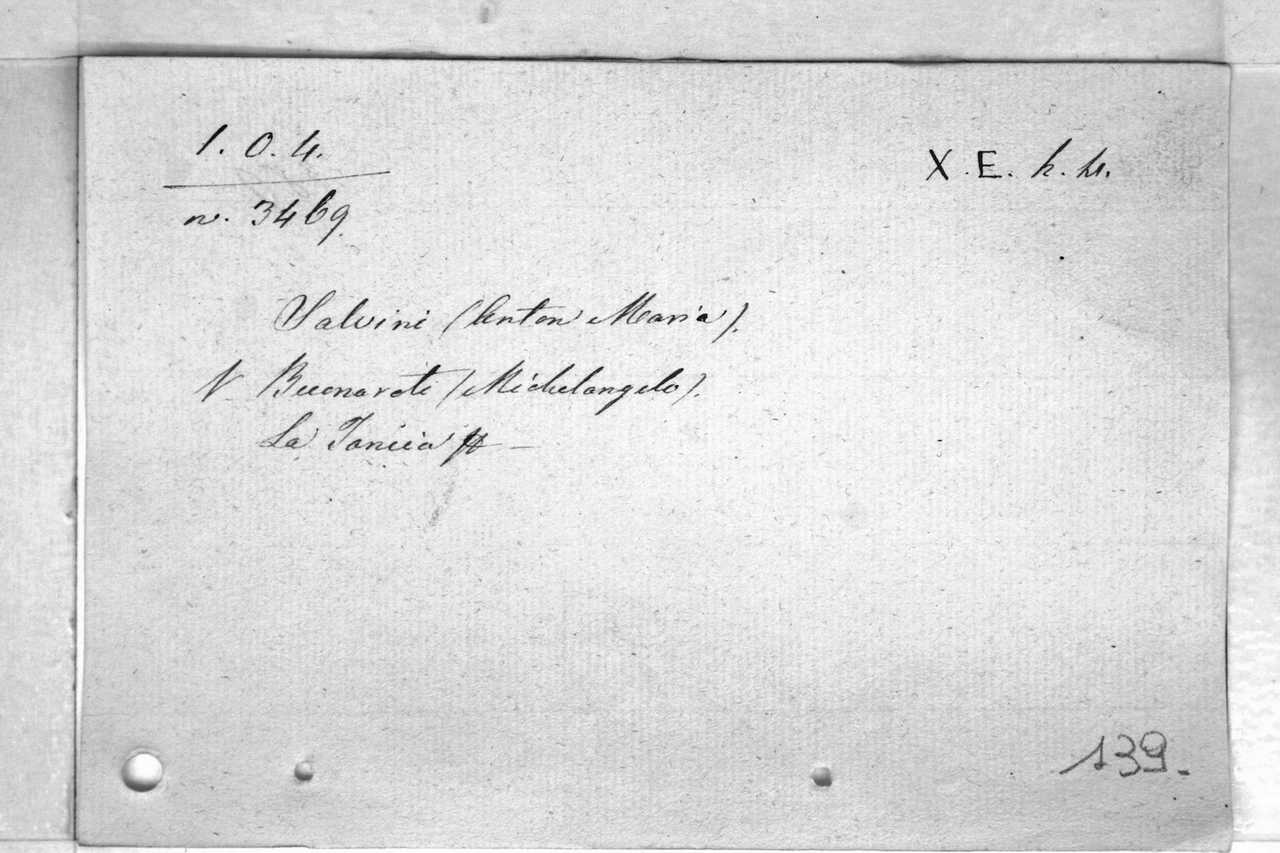 1. 0. 4.
X. E. h. h.
n. 3469
Salvini (Anton Maria).
V. Buonaroti (Michelangelo).
La Tancia
139.